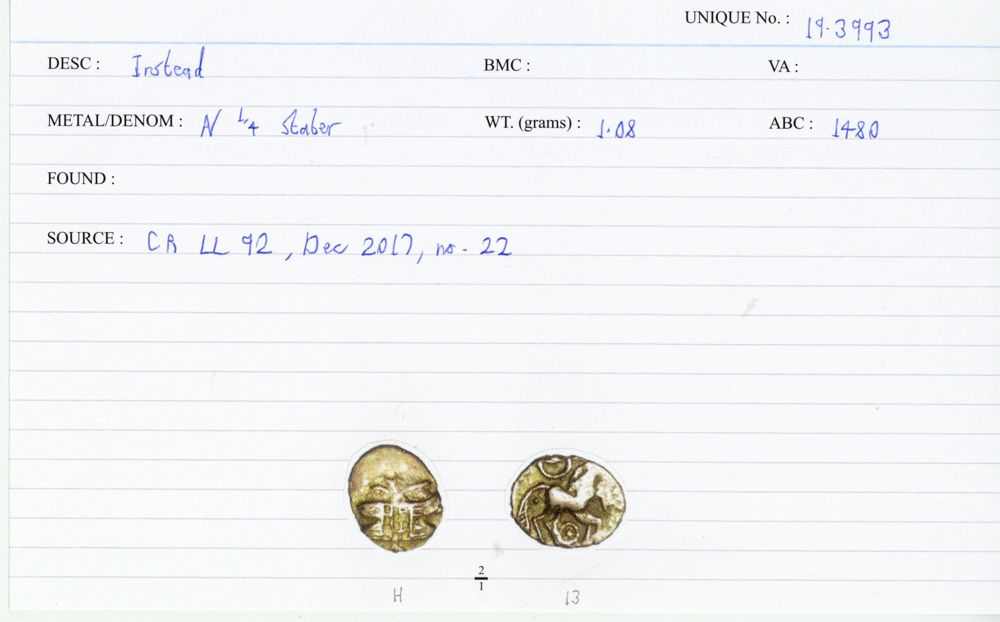 UNIQUE No. : 19.3993
DESC : Instead BMC : VA :
METAL/DENOM : N 1/4 Stater WT. (grams) : 1.08 ABC : 1480
FOUND :
SOURCE : CR LL 92, Dec 2017, no. 22
2
1
H 13